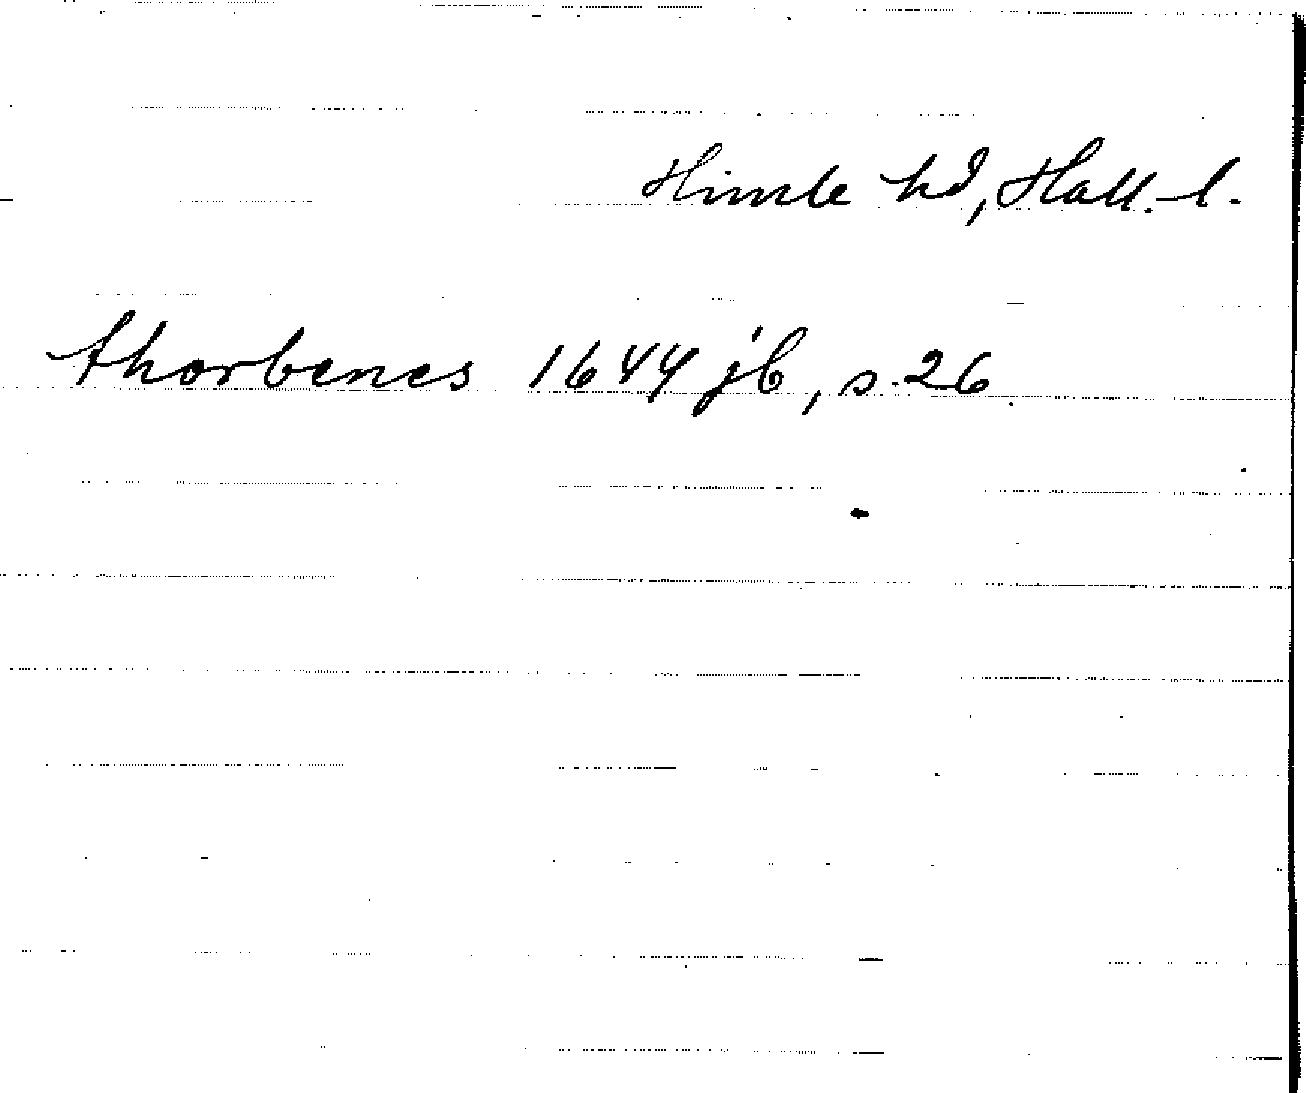 Himle hd, Hall. l.
thorbenes 1644 jb, s. 26